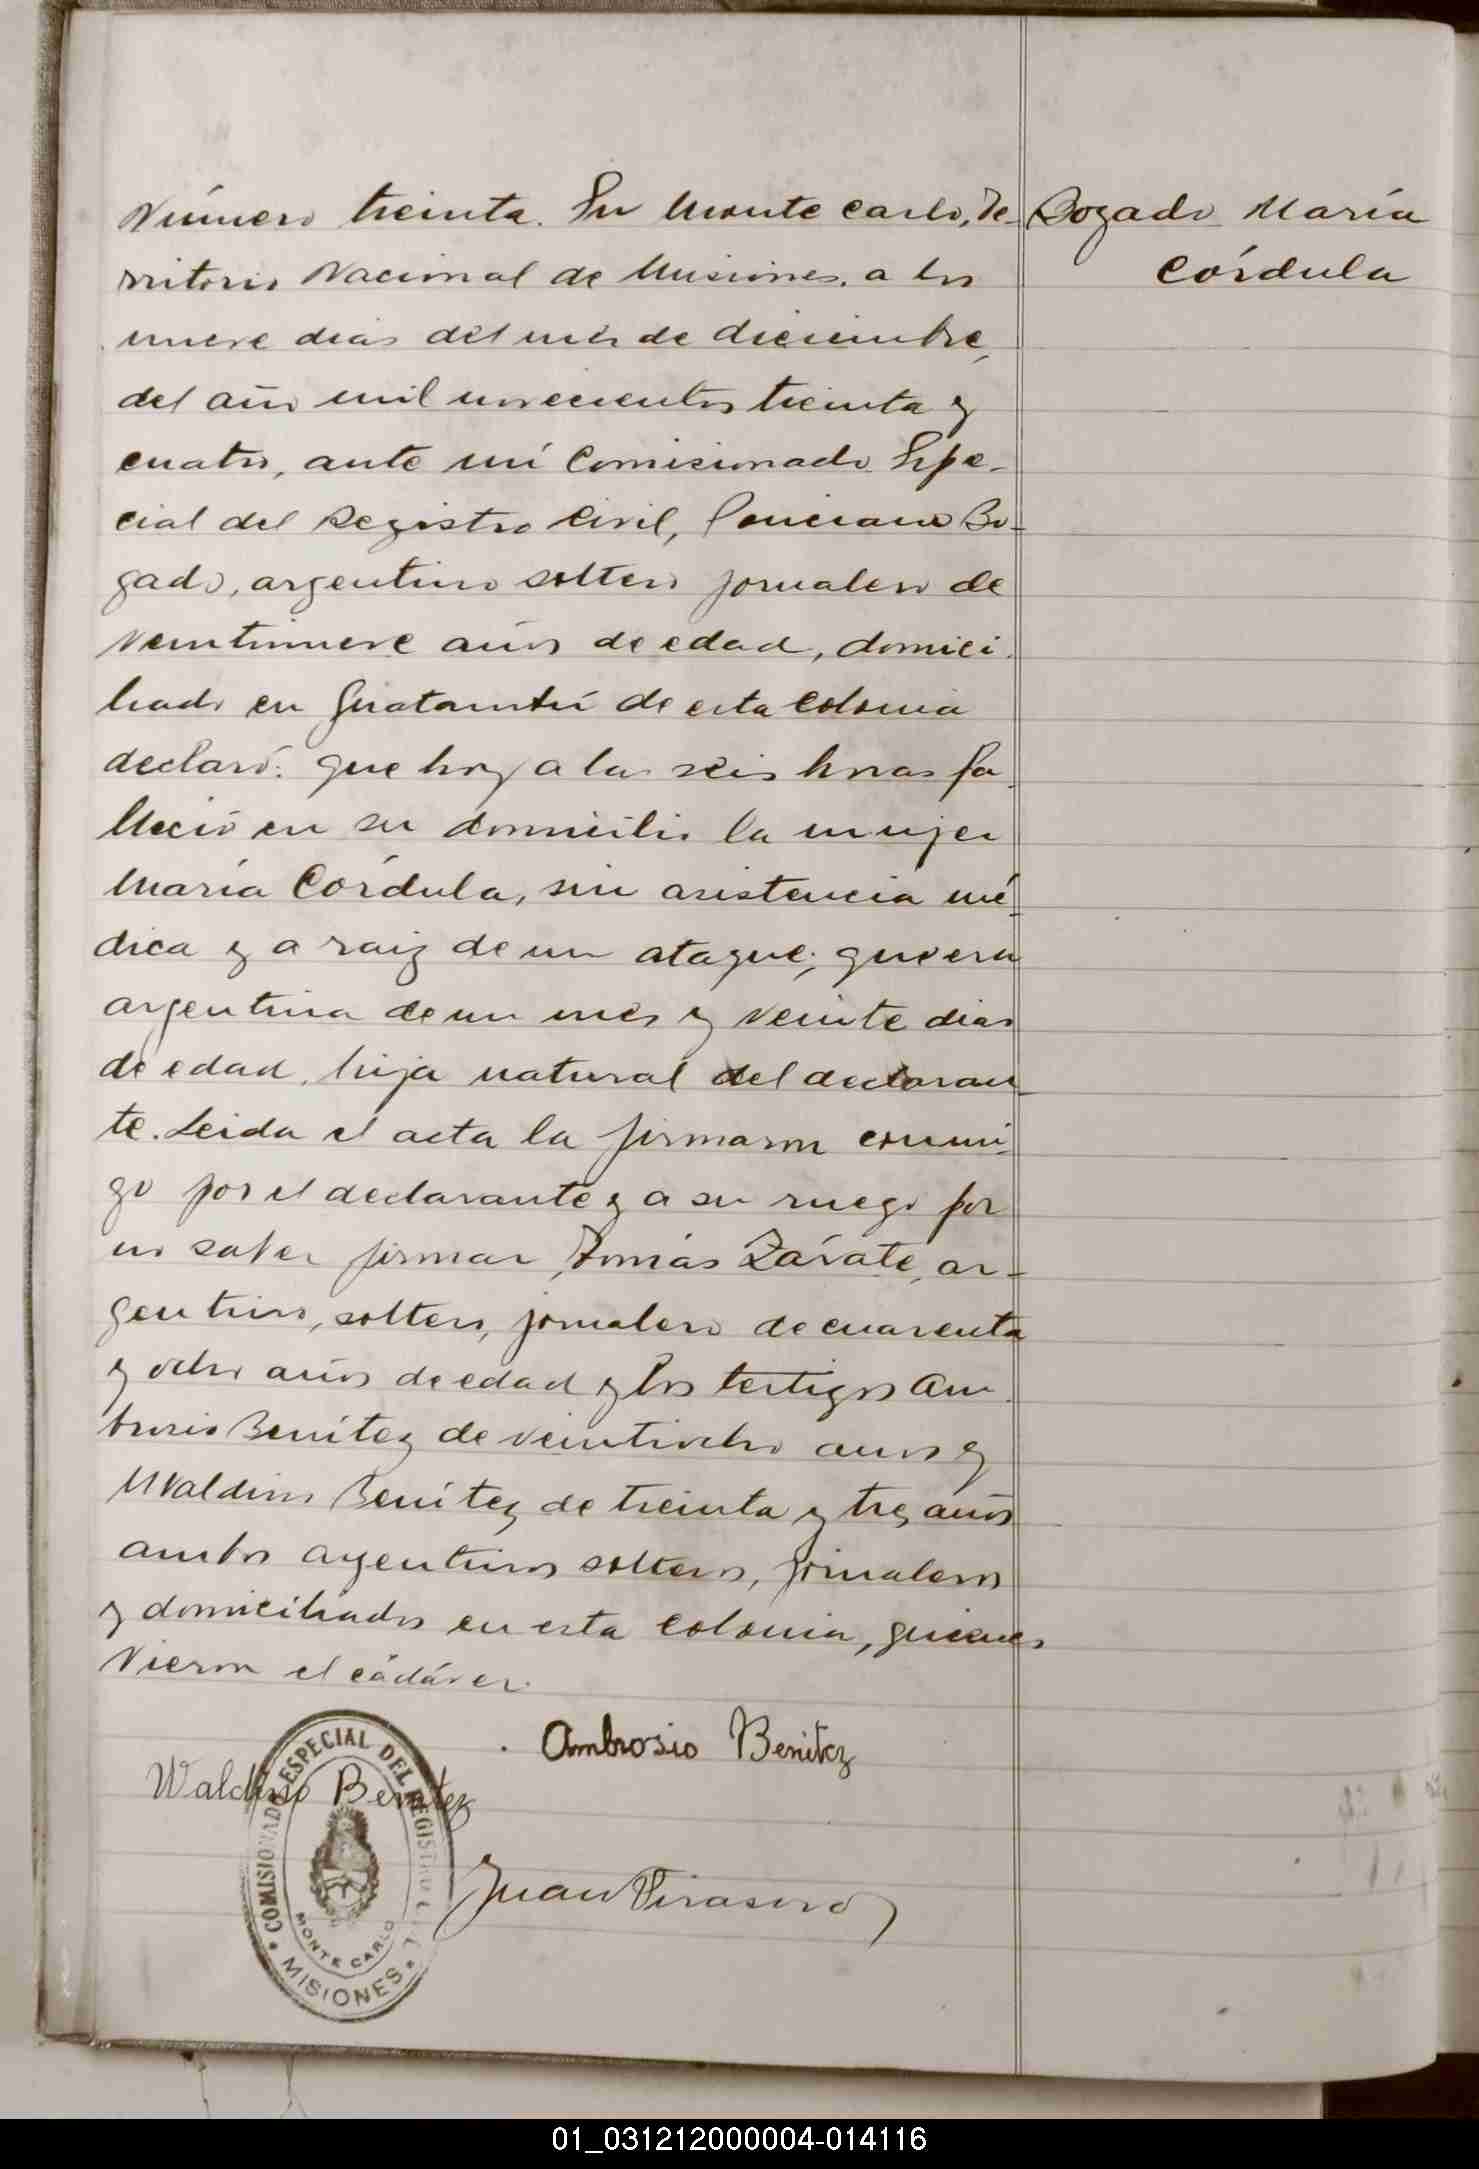 Número treinta. En Monte Carlo, Te-
rritorio Nacional de Misiones, a los
nueve dias del mes de diciembre,
del año mil novecientos treinta y
cuatro, ante mí Comisionado Espe-
cial del Registro Civil, Ponciano Bo-
gado, argentino soltero jornalero de
veintinueve años de edad, domici-
liado en Guatambú de esta Colonia
declaró: que hoy a las seis horas fa-
lleció en su domicilio la mujer
María Córdula, sin asistencia mé-
dica y a raiz de un ataque; que era
argentina de un mes y veinte dias
de edad, hija natural del declaran-
te. Leida el acta la firmaron conmi-
go por el declarante y a su ruego por
no saber firmar, Tomás Zárate, ar-
gentino, soltero, jornalero de cuarenta
y ocho años de edad y los testigos Am-
brosio Benítez de veintiocho años y
Waldino Benítez de treinta y tres años
ambos argentinos solteros, jornaleros
y domiciliados en esta Colonia, quienes
vieron el cádáver.
Bogado María
Córdula
Ambrosio Benitez
Waldino Benitez
Juan Virasoro
COMISIONADO ESPECIAL DEL REGISTRO CIVIL
MONTE CARLO
MISIONES
01_031212000004-014116